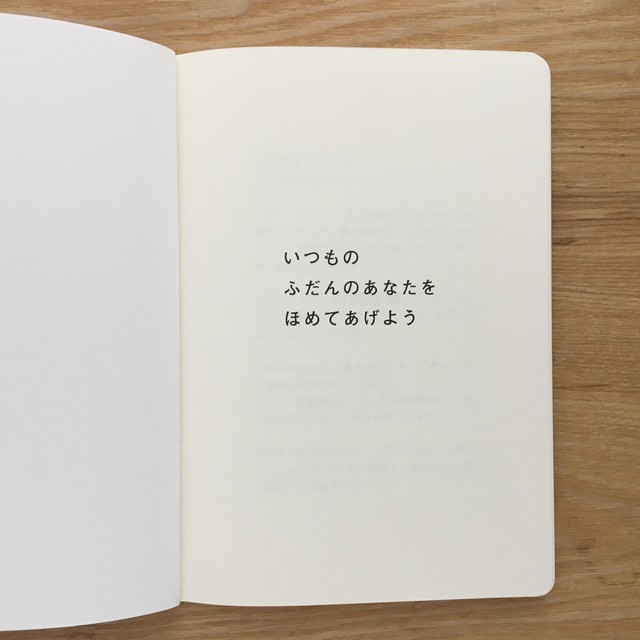 いつもの
ふだんのあなたを
ほめてあげよう